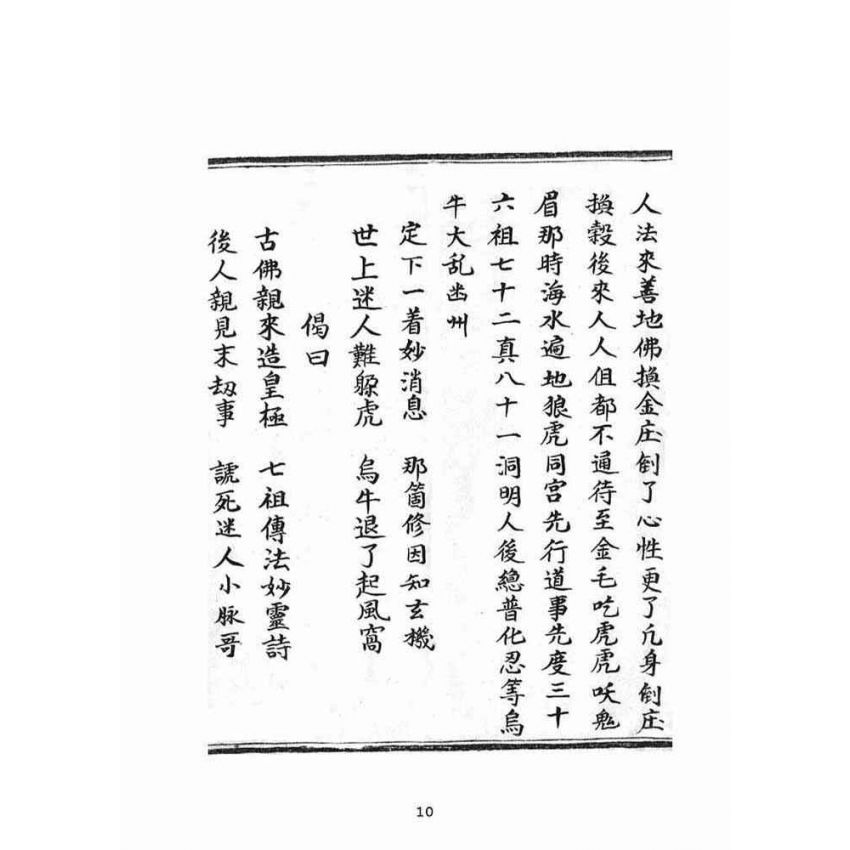 人法來善地佛換金庄倒了心性更了凢身倒庄
換殼後來人人但都不通待至金毛吃虎虎吠鬼
眉那時海水遍地狼虎同宮先行道事先度三十
六祖七十二真八十一洞明人後總普化忍等烏
牛大乱出州
定下一着妙消息 那箇修因知玄機
世上迷人難躱虎 烏牛退了起風窩
偈曰
古佛親來造皇極 七祖傳法妙靈詩
後人親見末刼事 諕死迷人小脉哥
10